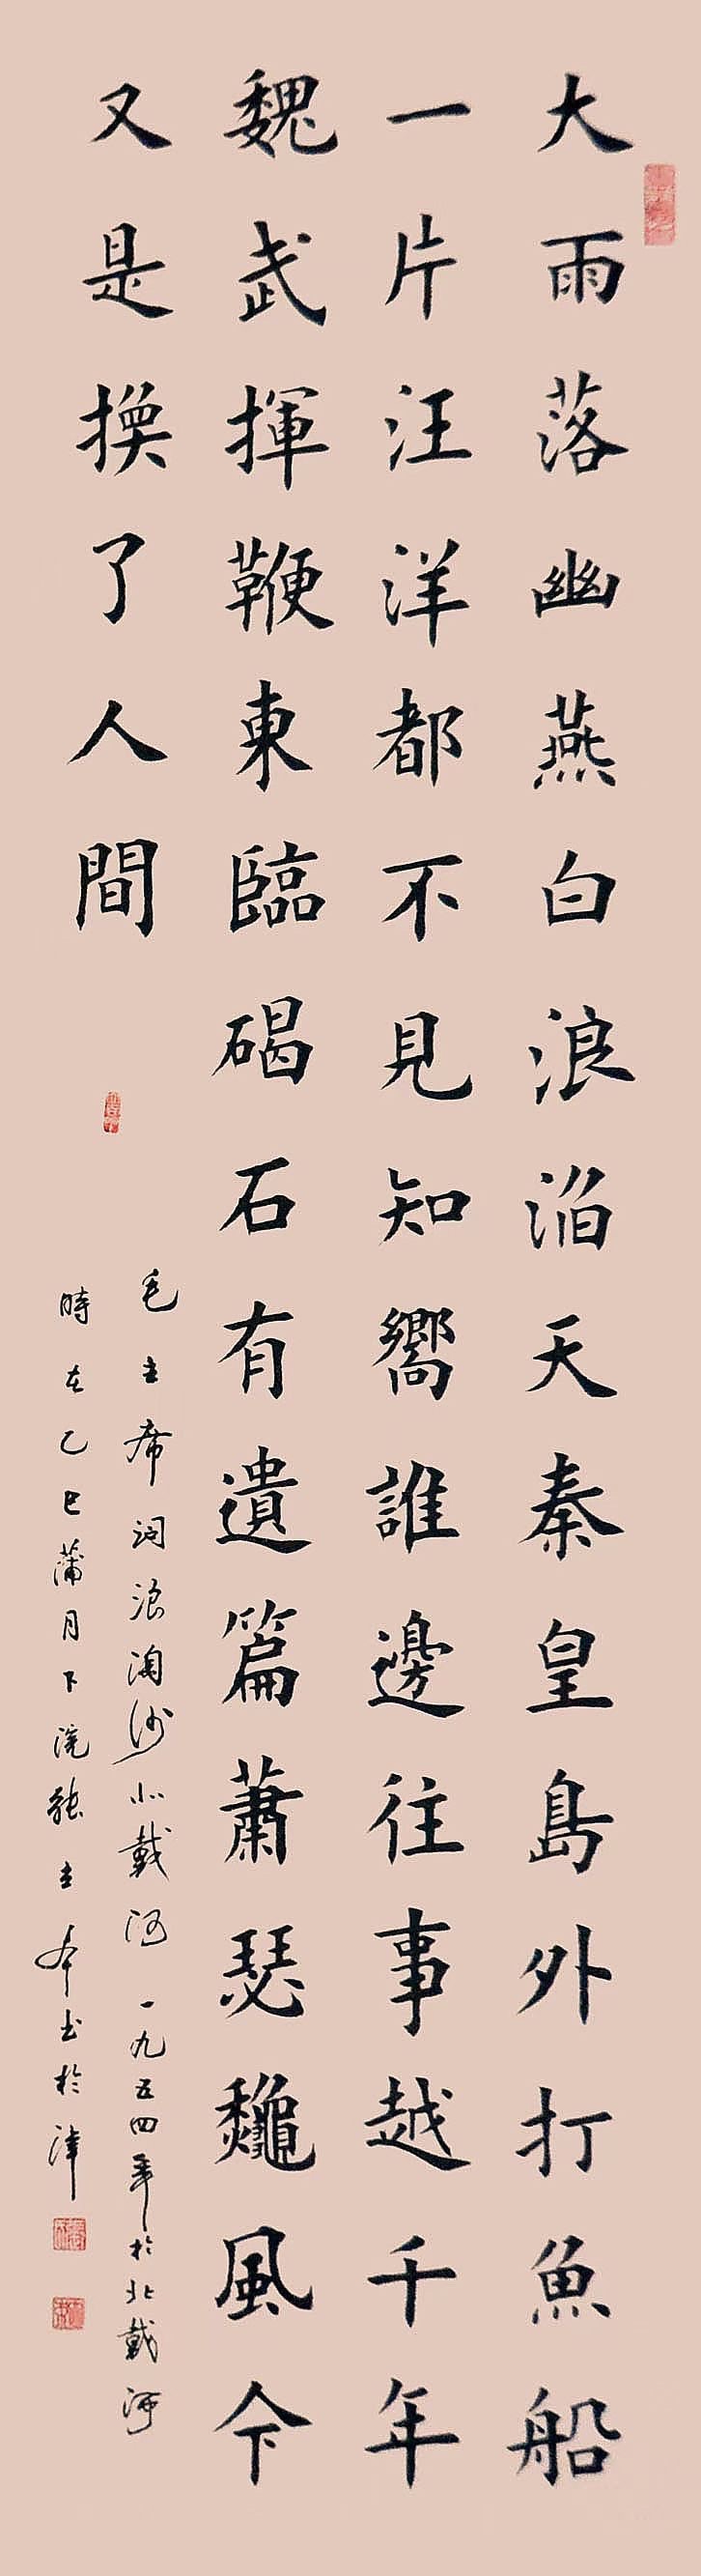 大雨落幽燕白浪滔天秦皇島外打魚船
一片汪洋都不見知嚮誰邊往事越千年
魏武揮鞭東臨碣石有遺篇蕭瑟龝風今
又是換了人間
毛主席词浪淘沙北戴河 一九五四年於北戴河
時在乙巳蒲月下浣張立本书於津